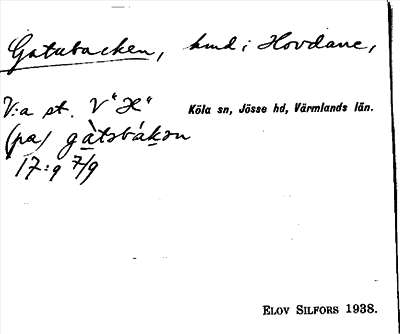 Gatubacken, hmd i Hovdane,
V:a st. V "H"
Köla sn, Jösse hd, Värmlands län.
(pa) gàtsbákən
17:9 7/9
ELOV SILFORS 1938.